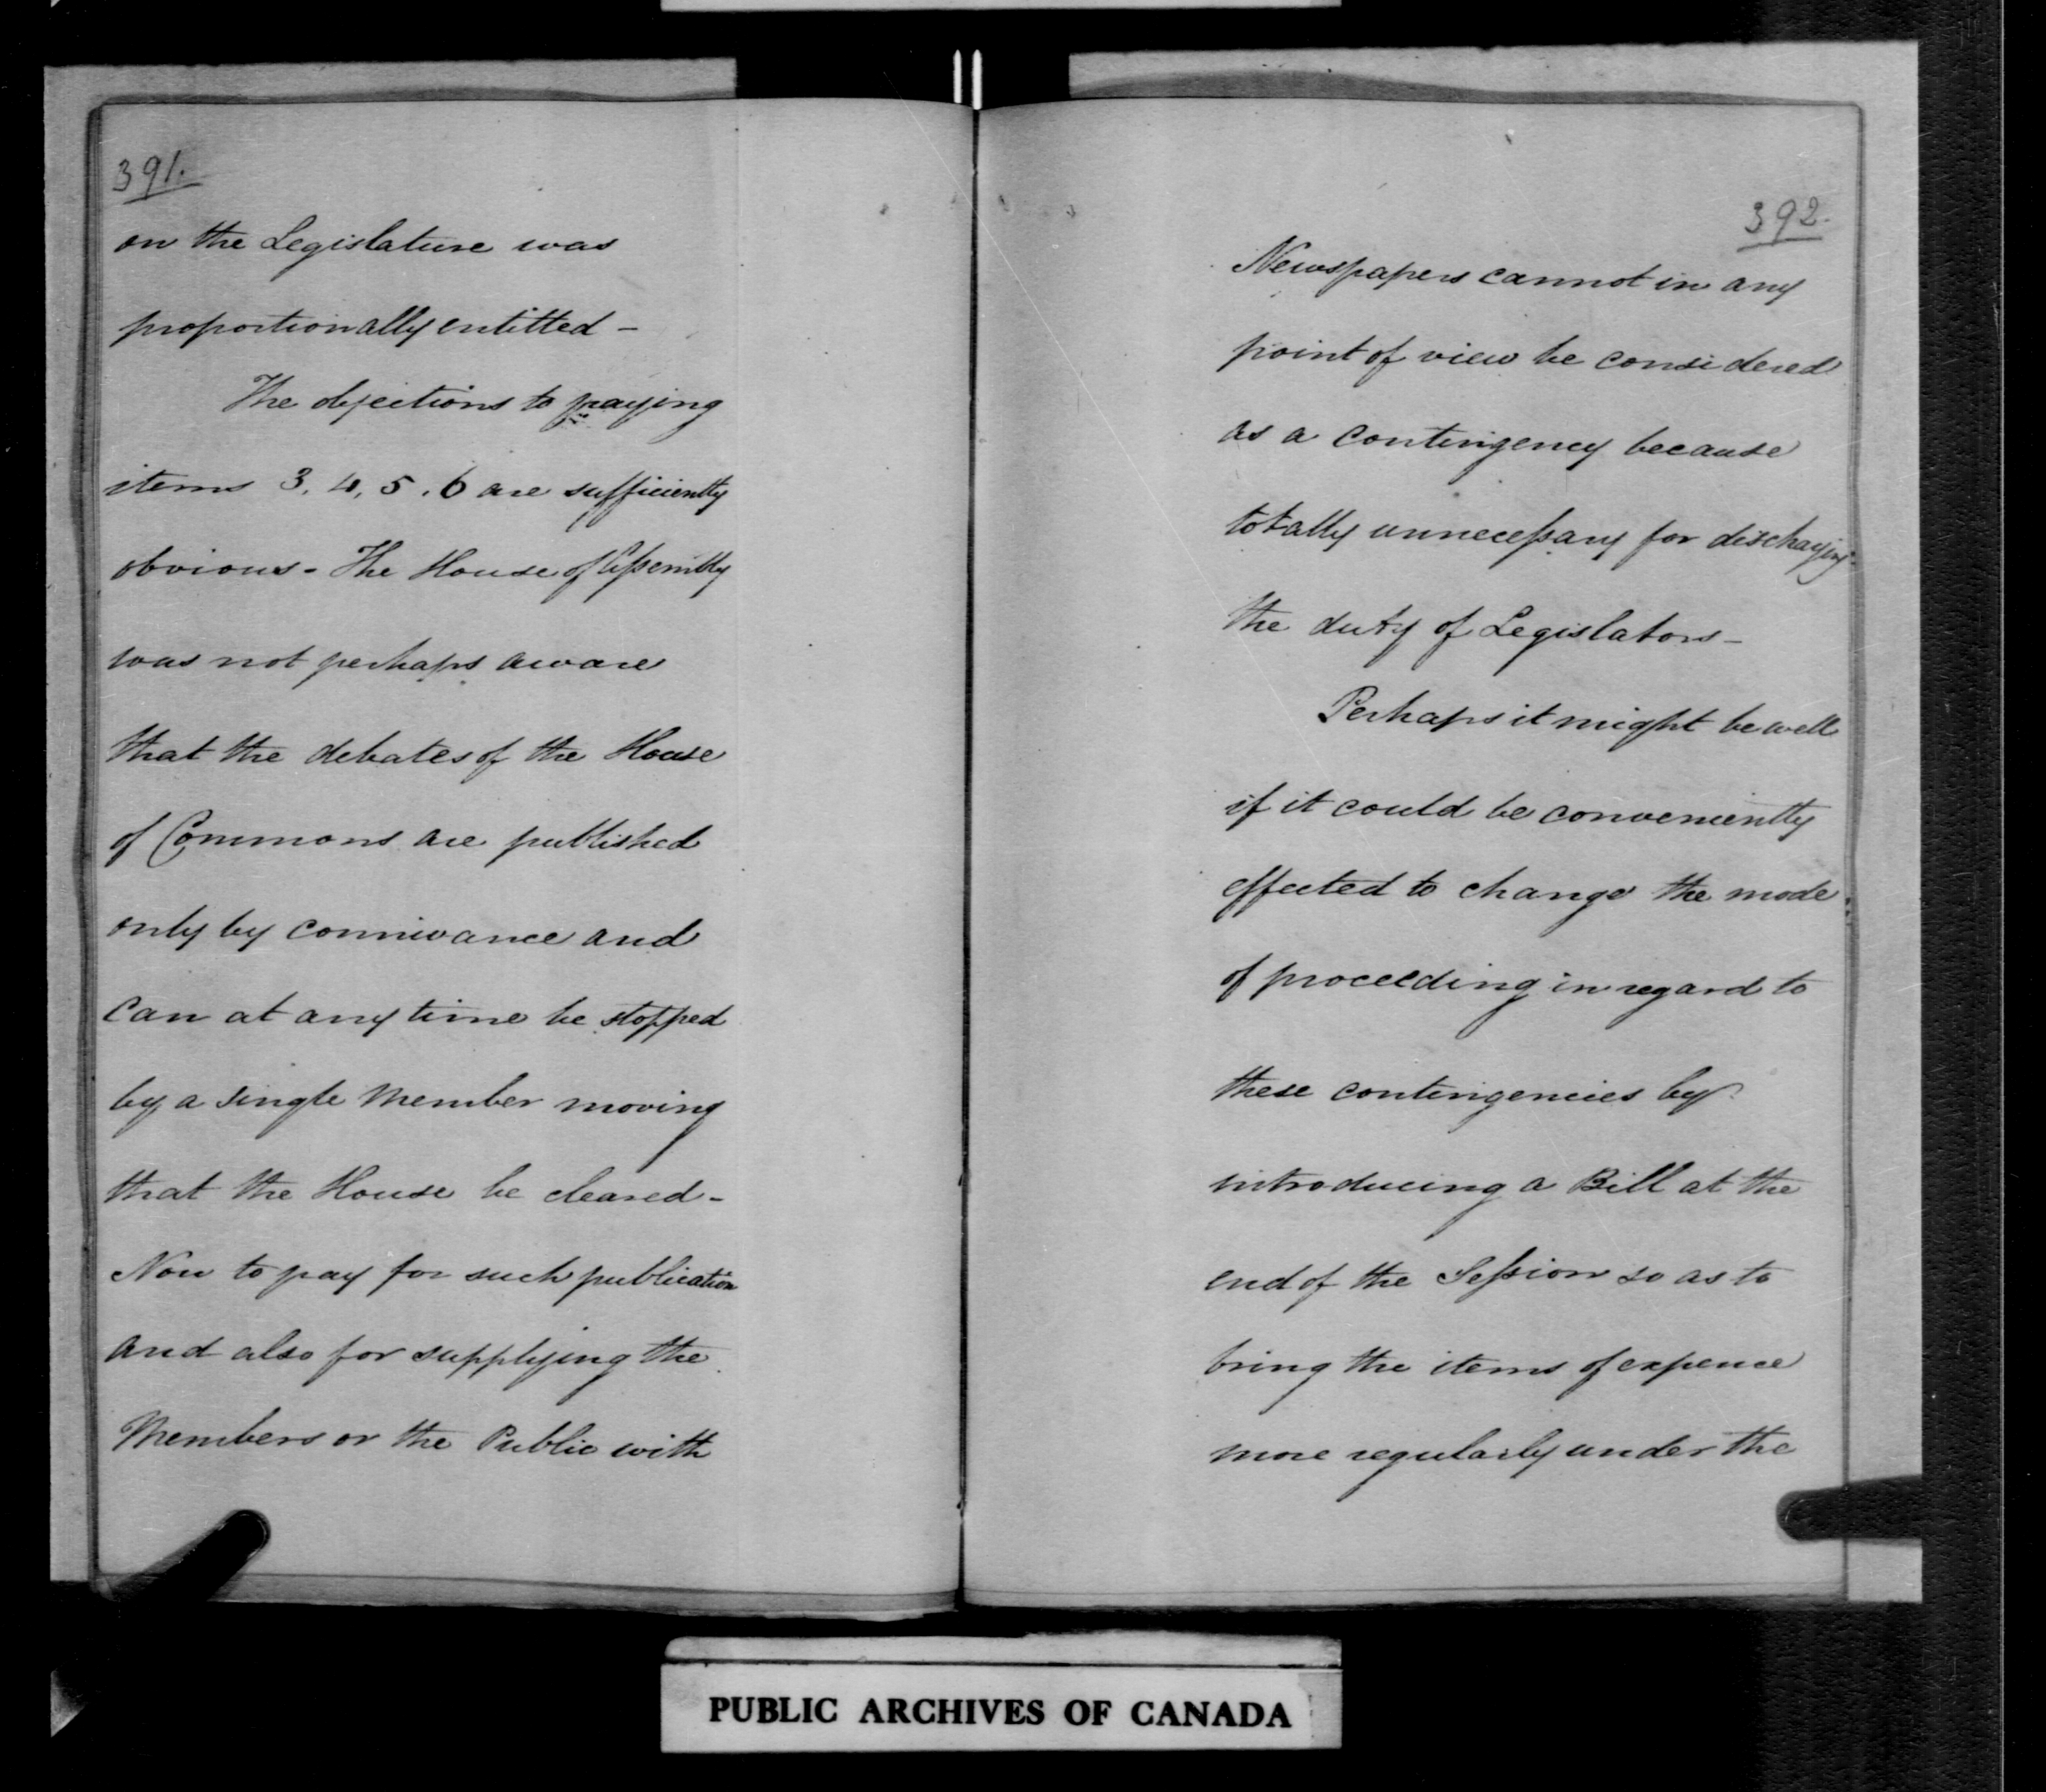 391.
on the Legislature was
proportionally entitled –
The objections to paying
items 3, 4, 5, 6 are sufficiently
obvious - The House of Assembly
was not perhaps aware
that the debates of the House
of Commons are published
only by connivance and
can at any time be stopped
by a single Member moving
that the House be cleared -
Now to pay for such publication
and also for supplying the
Members or the Public with
392.
Newspapers cannot in any
point of view be considered
as a contingency because
totally unnecessary for discharging
the duty of Legislators –
Perhaps it might be well
if it could be conveniently
effected to change the mode
of proceeding in regard to
these contingencies by
introducing a Bill at the
end of the Session so as to
bring the items of expence
more regularly under the
PUBLIC ARCHIVES OF CANADA